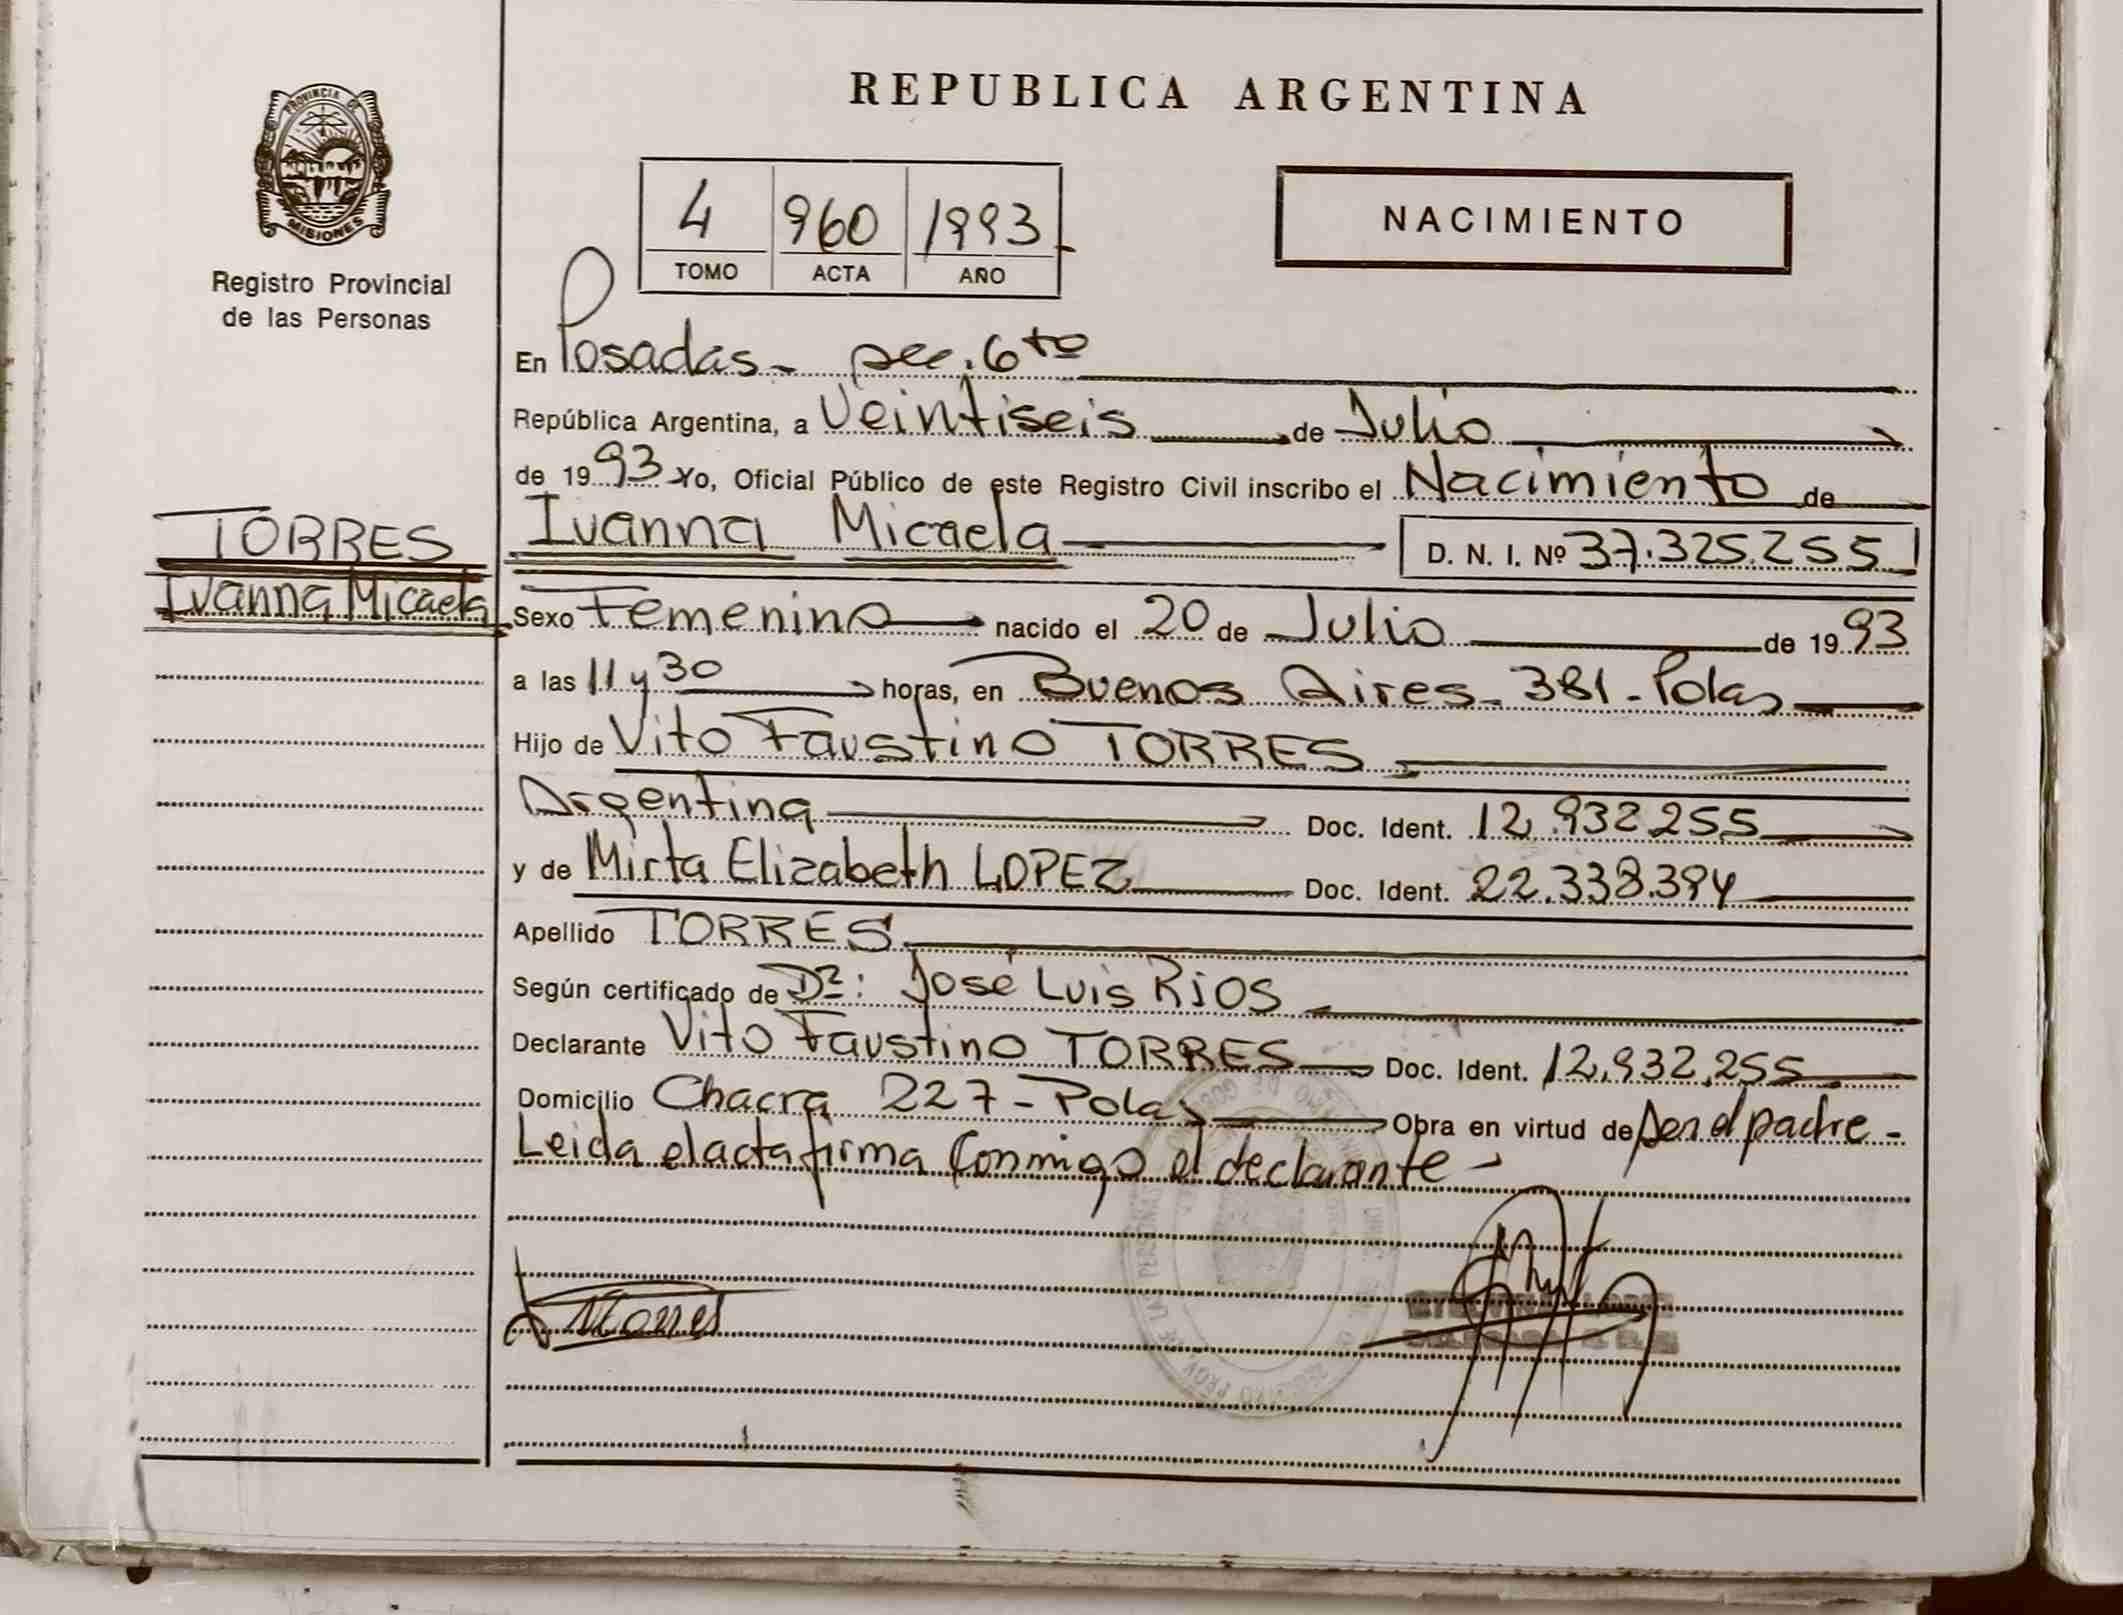 REPUBLICA ARGENTINA
PROVINCIA DE
MISIONES
Registro Provincial
de las Personas
4 960 1993
TOMO ACTA AÑO
NACIMIENTO
En Posadas - sec. 6to
República Argentina, a Veintiseis de Julio
de 1993 Yo, Oficial Público de este Registro Civil inscribo el Nacimiento de
TORRES
Ivanna Micaela
Ivanna Micaela D. N. I. Nº 37.325.255
Sexo Femenino nacido el 20 de Julio de 1993
a las 11 y 30 horas, en Buenos Aires - 381 - Pdas
Hijo de Vito Faustino TORRES
Argentina Doc. Ident. 12.932.255
y de Mirta Elizabeth LOPEZ Doc. Ident. 22.338.394
Apellido TORRES
Según certificado de Dr: José Luis RIOS
Declarante Vito Faustino TORRES Doc. Ident. 12.932.255
Domicilio Chacra 227 - Pdas Obra en virtud de ser el padre -
Leida el acta firma conmigo el declarante -
Torres